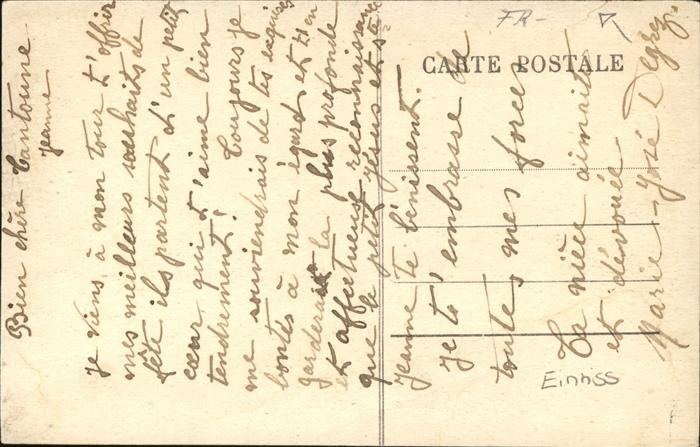 FR-
CARTE POSTALE
Bien chère Tantoune
Jeanne
je viens à mon tour t'offrir
mes meilleurs souhaits de
fête ils partent d'un petit
cœur qui t'aime bien
tendrement! Toujours je
me souviendrais de tes exquises
bontés à mon égard et t'en
garderais la plus profonde
et affectueuse reconnaissance
que le petit Jésus et Ste
Jeanne te bénissent.
Je t'embrasse de
toutes mes forces
Ta nièce aimante
et dévouée
Marie-José Degrez.
Einriss